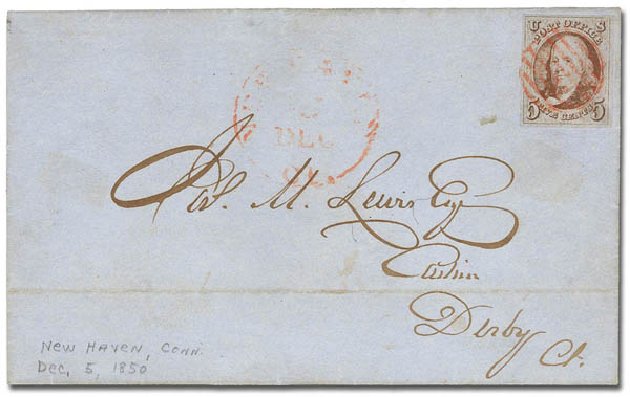 U S
POST OFFICE
FIVE CENTS
5 5
DEC
M. Lewis Esq
Derby
Ct.
New Haven, Conn.
Dec. 5, 1850